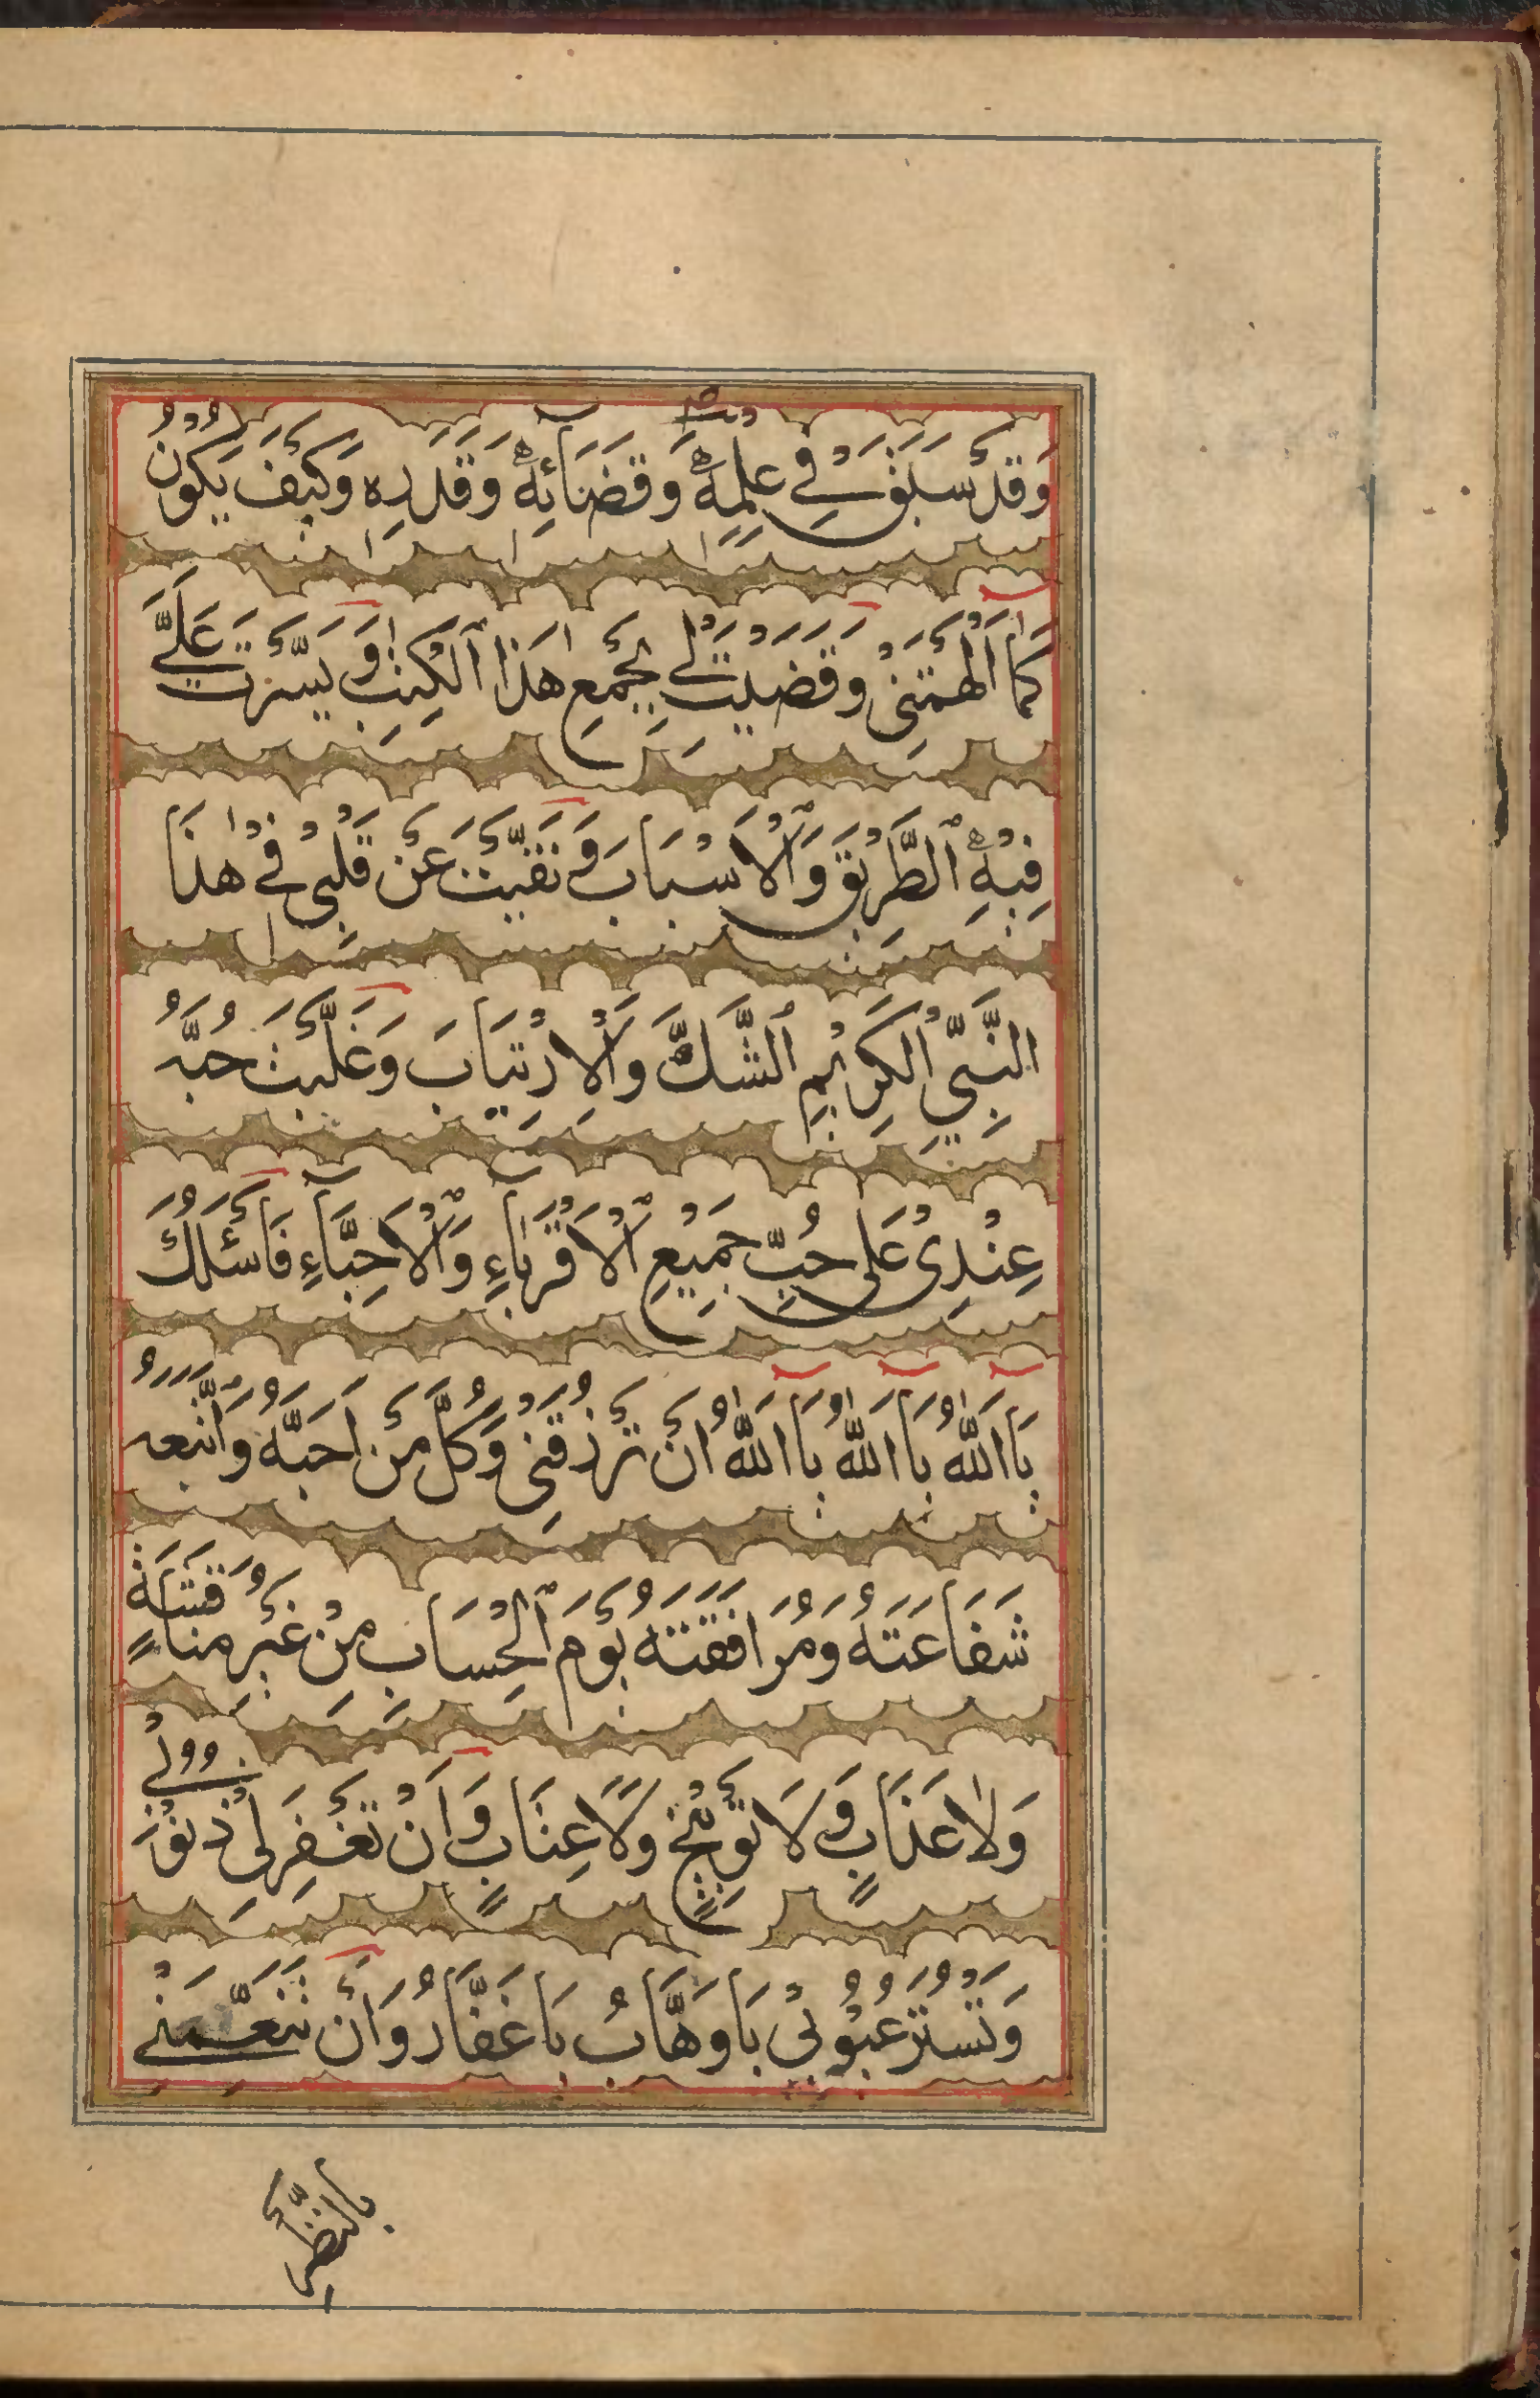 وَقَدْ سَبَقَ فِي عِلْمِهِ وَقَضَائِهِ وَقَدَرِهِ وَكَيْفَ يَكُونُ
كَمَا أَلْهَمْتَنِي وَقَضَيْتَ لِي بِجَمْعِ هٰذَا الْكِتٰبِ وَيَسَّرْتَ عَلَيَّ
فِيهِ الطَّرِيقَ وَالْأَسْبَابَ وَنَفَيْتَ عَنْ قَلْبِي فِي هٰذَا
النَّبِيِّ الْكَرِيمِ الشَّكَّ وَالْاِرْتِيَابَ وَغَلَّبْتَ حُبَّهُ
عِنْدِي عَلَى حُبِّ جَمِيعِ الْأَقْرِبَاءِ وَالْأَحِبَّاءِ فَأَسْئَلُكَ
يَا اَللّٰهُ يَا اَللّٰهُ يَا اَللّٰهُ أَنْ تَرْزُقَنِي وَكُلَّ مَنْ أَحَبَّهُ وَاتَّبَعَهُ
شَفَاعَتَهُ وَمُرَافَقَتَهُ يَوْمَ الْحِسَابِ مِنْ غَيْرِ مُنَاقَشَةٍ
وَلَا عَذَابٍ وَلَا تَوْبِيخٍ وَلَا عِتَابٍ وَأَنْ تَغْفِرَ لِي ذُنُوبِي
وَتَسْتُرَ عُيُوبِي يَا وَهَّابُ يَا غَفَّارُ وَأَنْ تُنَعِّمَنِي
بِالنَّظَرِ